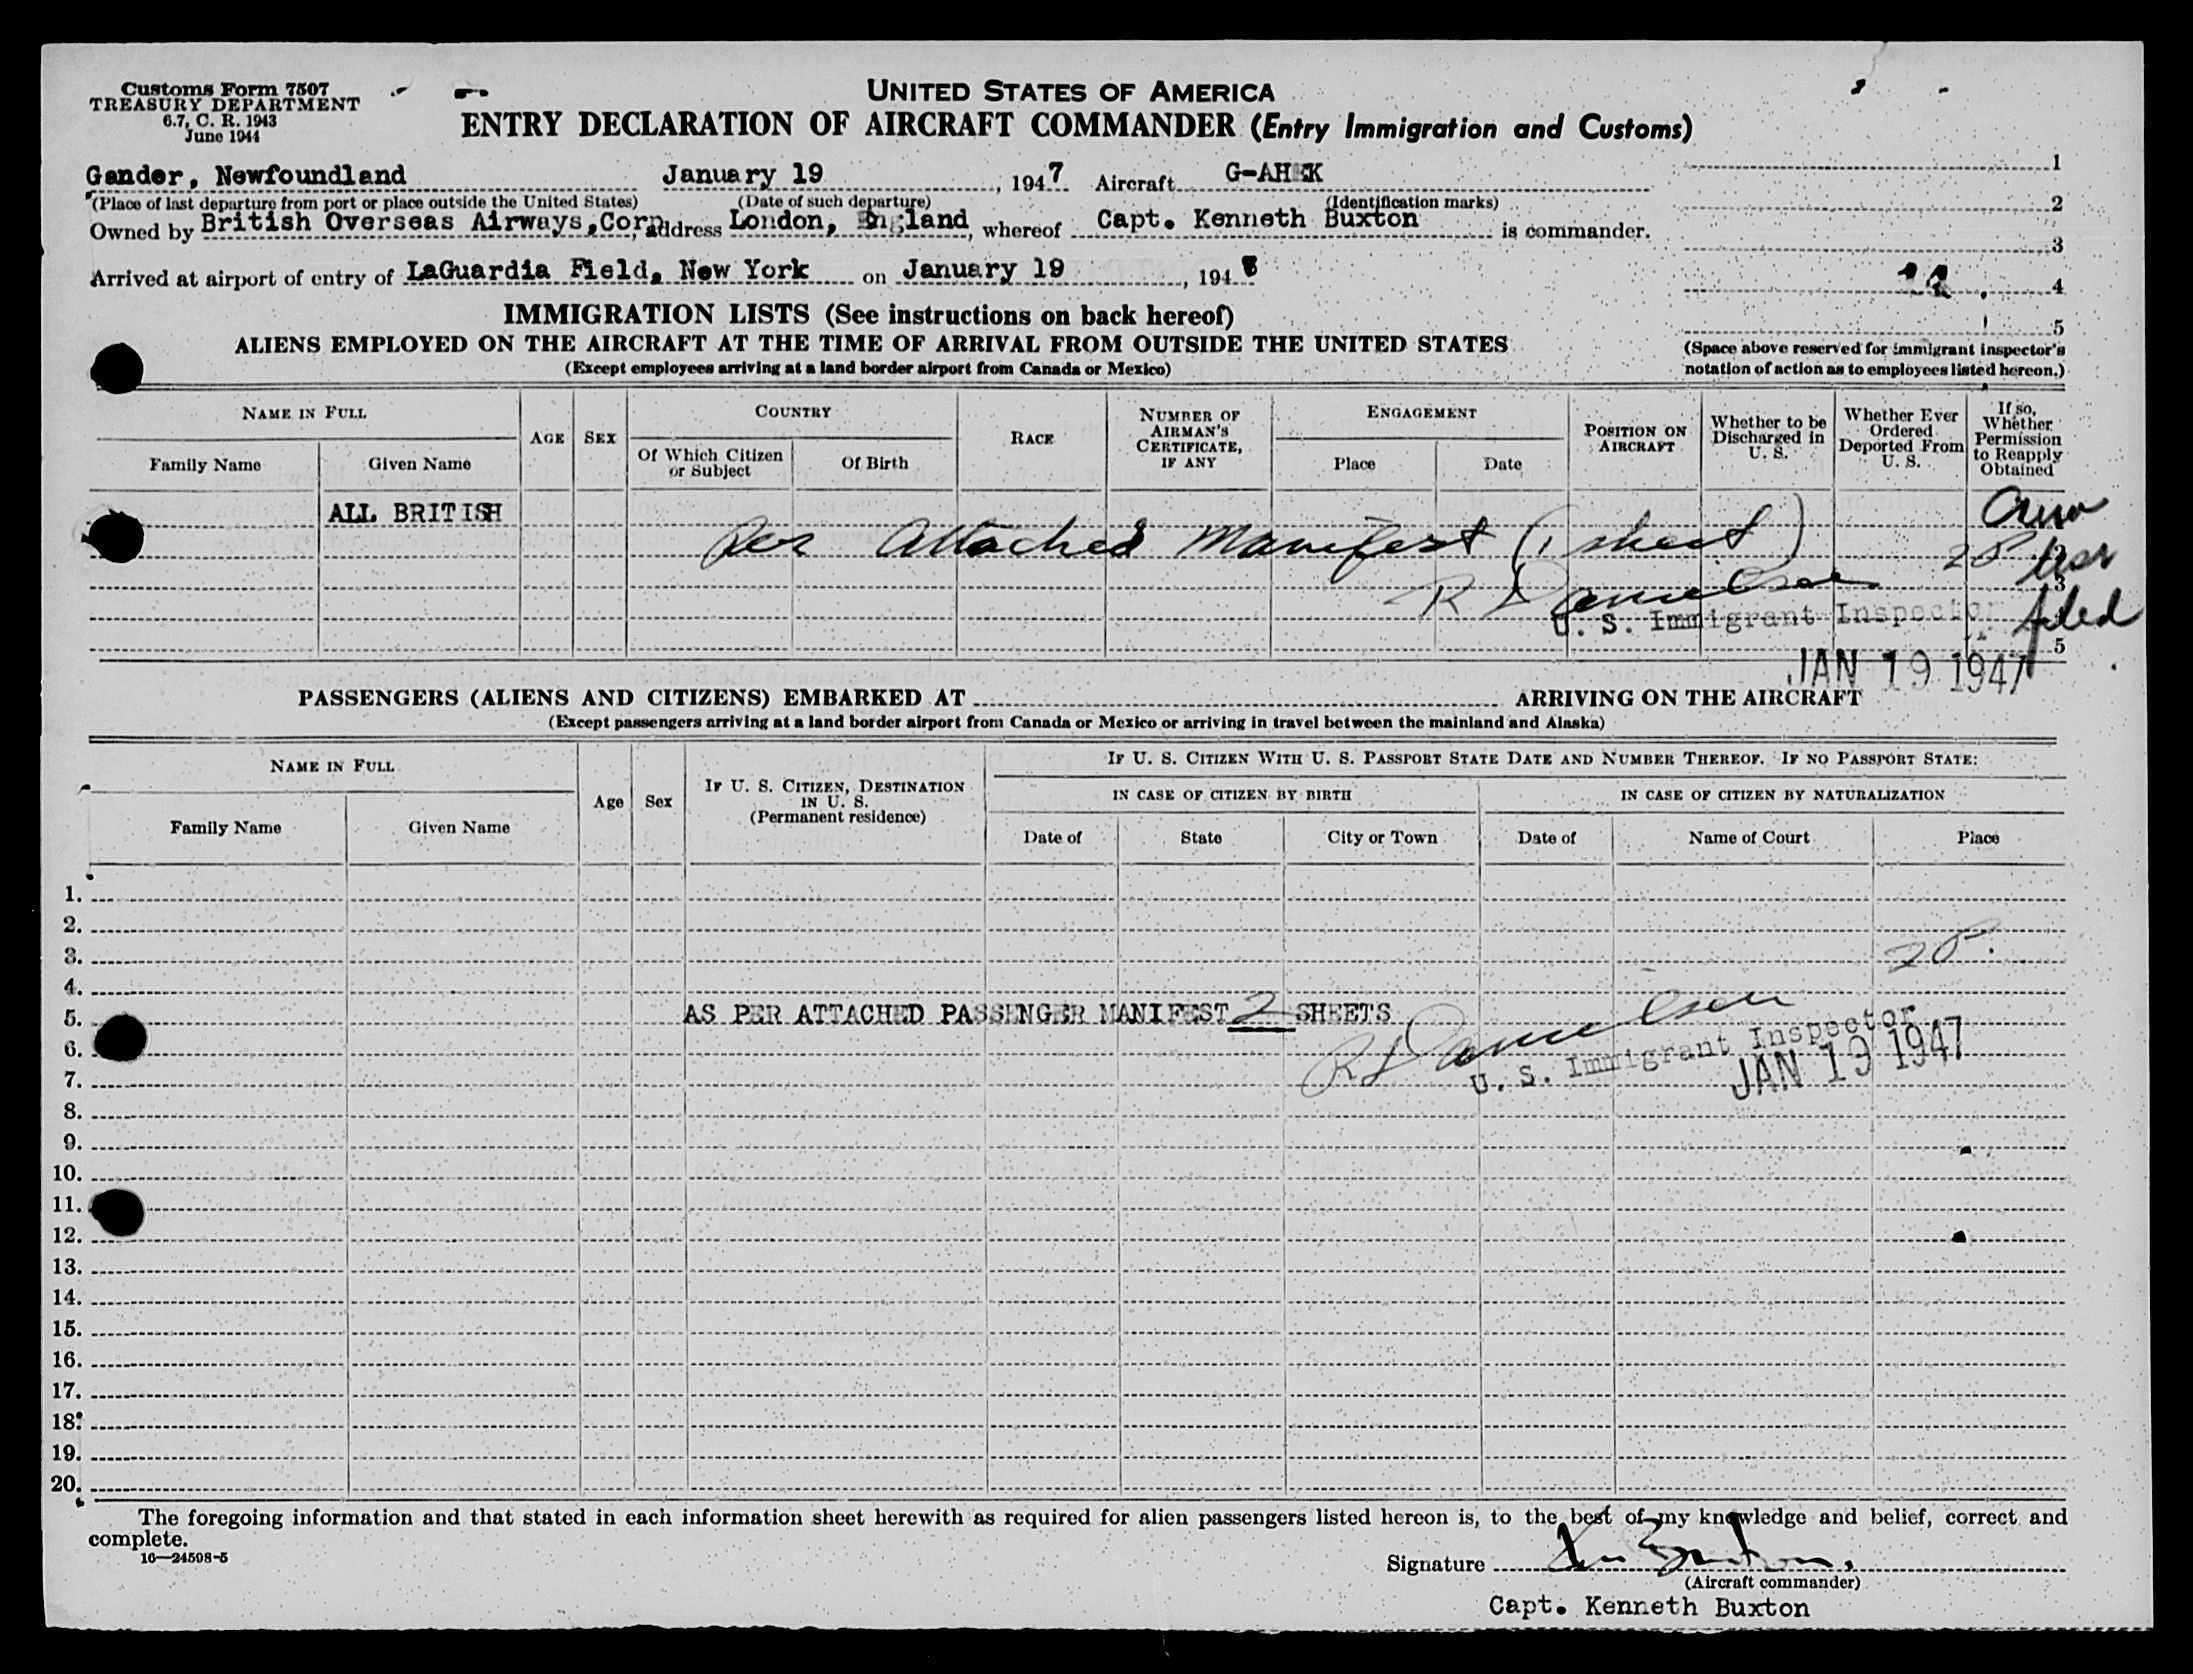 Customs Form 7507
TREASURY DEPARTMENT
6.7, C. R. 1943
June 1944
UNITED STATES OF AMERICA
ENTRY DECLARATION OF AIRCRAFT COMMANDER (Entry Immigration and Customs)
Gander, Newfoundland January 19, 1947 Aircraft G-AHEK
(Place of last departure from port or place outside the United States) (Date of such departure) (Identification marks)
Owned by British Overseas Airways, Corp address London, England, whereof Capt. Kenneth Buxton is commander.
Arrived at airport of entry of LaGuardia Field, New York on January 19, 194
1
2
3
4
5
(Space above reserved for immigrant inspector's notation of action as to employees listed hereon.)
IMMIGRATION LISTS (See instructions on back hereof)
ALIENS EMPLOYED ON THE AIRCRAFT AT THE TIME OF ARRIVAL FROM OUTSIDE THE UNITED STATES
(Except employees arriving at a land border airport from Canada or Mexico)
NAME IN FULL
Family Name
Given Name
AGE
SEX
COUNTRY
Of Which Citizen or Subject
Of Birth
RACE
NUMBER OF AIRMAN'S CERTIFICATE, IF ANY
ENGAGEMENT
Place
Date
POSITION ON AIRCRAFT
Whether to be Discharged in U. S.
Whether Ever Ordered Deported From U. S.
If so, Whether Permission to Reapply Obtained
ALL BRITISH
Per Attached Manifest (1 sheet)
Crew
2P list
filed
2
3
5
R Danielson
U. S. Immigrant Inspector
JAN 19 1947
PASSENGERS (ALIENS AND CITIZENS) EMBARKED AT ARRIVING ON THE AIRCRAFT
(Except passengers arriving at a land border airport from Canada or Mexico or arriving in travel between the mainland and Alaska)
NAME IN FULL
Family Name
Given Name
Age
Sex
IF U. S. CITIZEN, DESTINATION IN U. S.
(Permanent residence)
IF U. S. CITIZEN WITH U. S. PASSPORT STATE DATE AND NUMBER THEREOF. IF NO PASSPORT STATE:
IN CASE OF CITIZEN BY BIRTH
IN CASE OF CITIZEN BY NATURALIZATION
Date of
State
City or Town
Date of
Name of Court
Place
1.
2.
3. 2P.
4.
5. AS PER ATTACHED PASSENGER MANIFEST 2 SHEETS
R Danielson
U. S. Immigrant Inspector
JAN 19 1947
6.
7.
8.
9.
10.
11.
12.
13.
14.
15.
16.
17.
18.
19.
20.
The foregoing information and that stated in each information sheet herewith as required for alien passengers listed hereon is, to the best of my knowledge and belief, correct and
complete.
16—24508-5
Signature Ken Buxton.
(Aircraft commander)
Capt. Kenneth Buxton